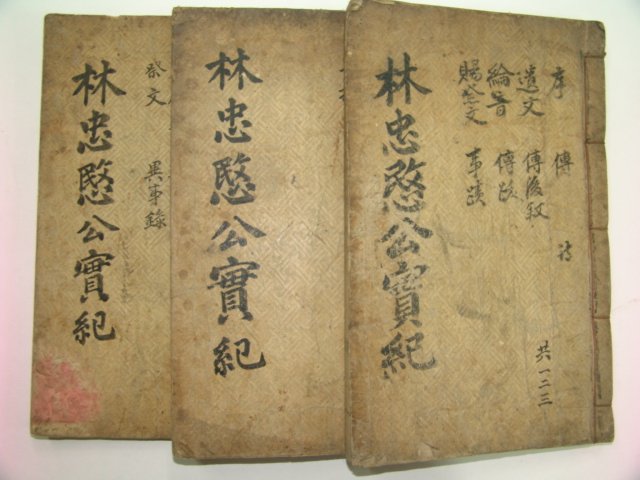 序 傳 詩
遺文 傳後敍
綸音 傳跋
賜祭文 事蹟
林忠愍公實紀
共一二三
林忠愍公實紀
祭文 異事錄
林忠愍公實紀